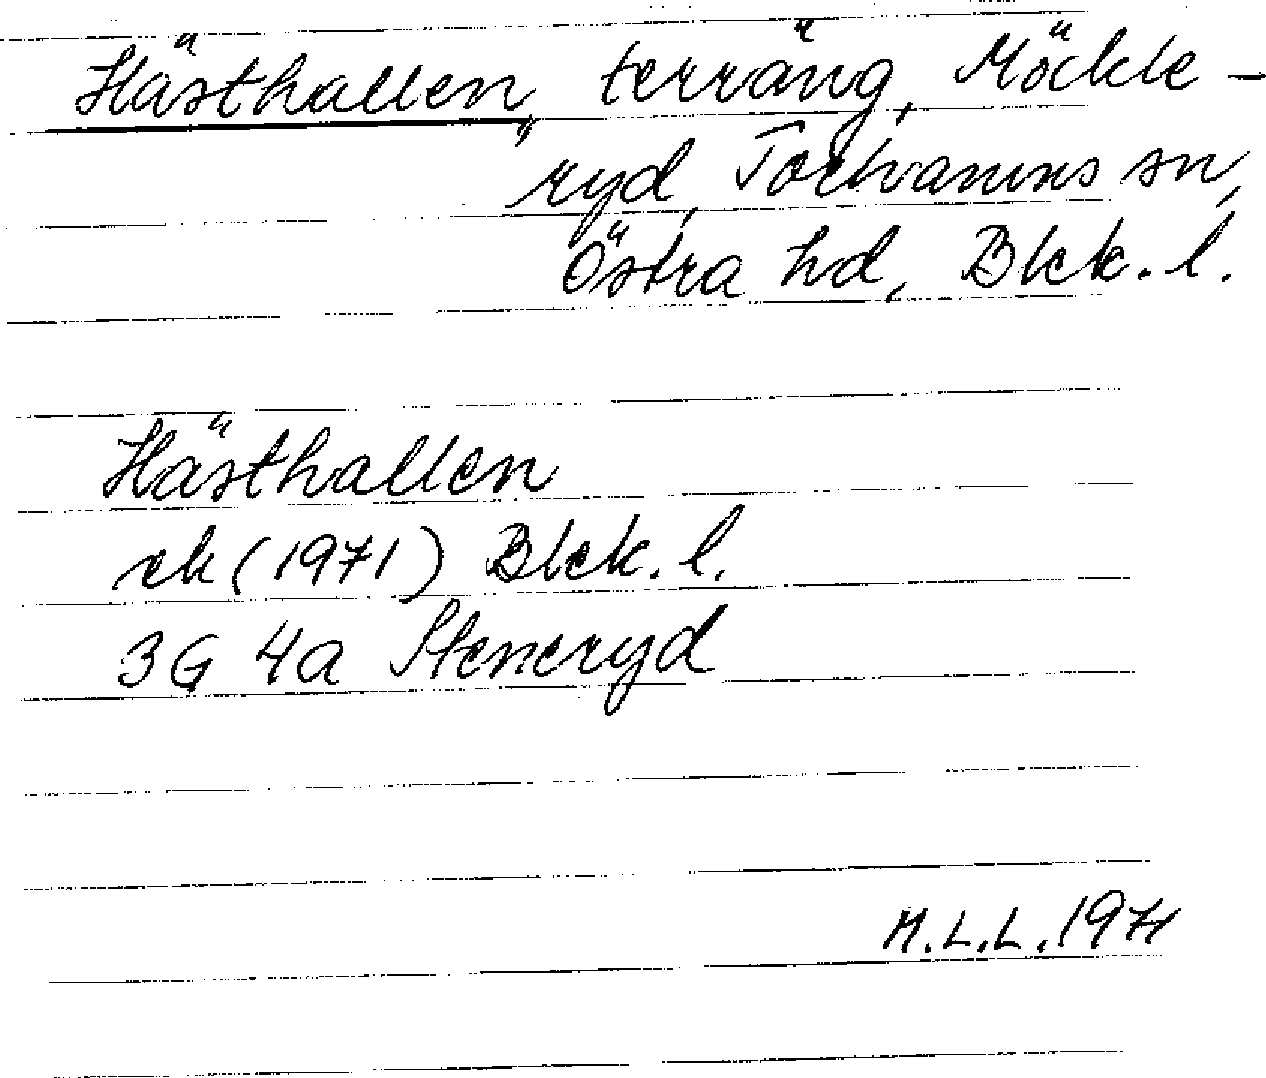 Hästhallen, terräng, Möckle-
ryd, Torhamns sn,
Östra hd, Blek. l.
Hästhallen
ek (1971) Blek. l.
3G 4a Steneryd
M.L.L. 1971